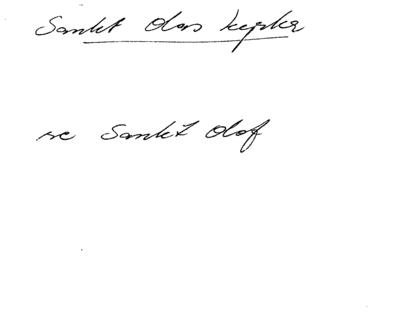 Sankt Olas kyrka
se Sankt Olof